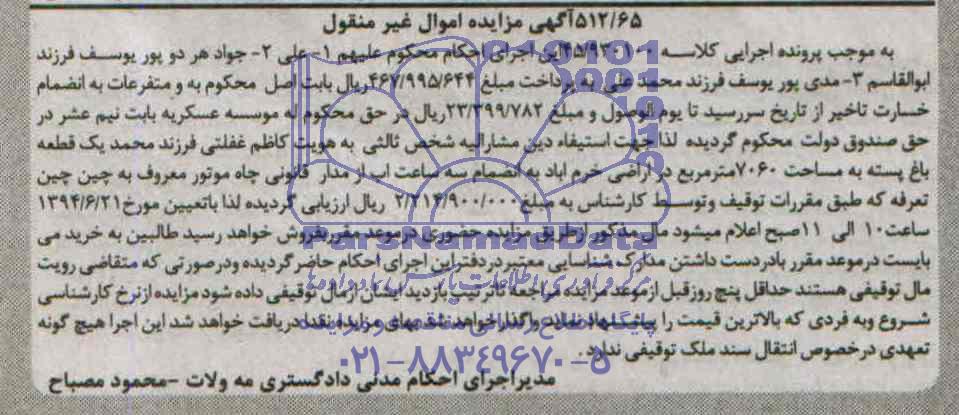 ۵۱۲/۶۵آگهی مزایده اموال غیر منقول
به موجب پرونده اجرایی کلاسه ۴۵/۹۳۰۱۰۰این اجرای احکام محکوم علیهم ۱-علی ۲-جواد هر دو پور یوسف فرزند
ابوالقاسم ۳-مدی پور یوسف فرزند محمد علی به پرداخت مبلغ ۴۶۷/۹۹۵/۶۴۴ریال بابت اصل محکوم به و متفرعات به انضمام
خسارت تاخیر از تاریخ سررسید تا یوم الوصول و مبلغ ۲۳/۳۹۹/۷۸۲ریال در حق محکوم له موسسه عسکریه بابت نیم عشر در
حق صندوق دولت محکوم گردیده لذا جهت استیفاء دین مشارالیه شخص ثالثی به هویت کاظم غفلتی فرزند محمد یک قطعه
باغ پسته به مساحت ۷۰۶۰مترمربع در اراضی خرم اباد به انضمام سه ساعت اب از مدار قانونی چاه موتور معروف به چین چین
تعرفه که طبق مقررات توقیف وتوسط کارشناس به مبلغ۲/۲۱۴/۹۰۰/۰۰۰ ریال ارزیابی گردیده لذا باتعیین مورخ۱۳۹۴/۶/۲۱
ساعت۱۰ الی ۱۱صبح اعلام میشود مال مذکور ازطریق مزایده حضوری درموعد مقرربفروش خواهد رسید طالبین به خرید می
بایست درموعد مقرر بادردست داشتن مدارک شناسایی معتبردردفتراین اجرای احکام حاضرگردیده ودرصورتی که متقاضی رویت
مال توقیفی هستند حداقل پنج روزقبل ازموعد مزایده مراجعه تاترتیب بازدید ایشان ازمال توقیفی داده شود مزایده ازنرخ کارشناسی
شروع وبه فردی که بالاترین قیمت را پیشنهاد نماید واگذارخواهد شد بهای مزایده نقدا دریافت خواهد شد این اجرا هیچ گونه
تعهدی درخصوص انتقال سند ملک توقیفی ندارد.
مدیراجرای احکام مدنی دادگستری مه ولات -محمود مصباح
ParsNamadData
مرکز فرآوری اطلاعات پارس نماد داده ها
۰۲۱-۸۸۳۴۹۶۷۰-۵